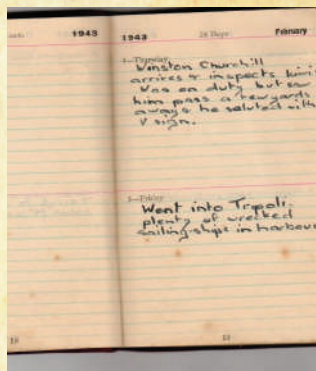 1943
1943 28 Days February
4—Thursday
Winston Churchill
arrives & inspects
Was on duty but saw
him pass a few yards
away he saluted with
V sign.
5—Friday
Went into Tripoli.
plenty of wrecked
sailing ships in harbour